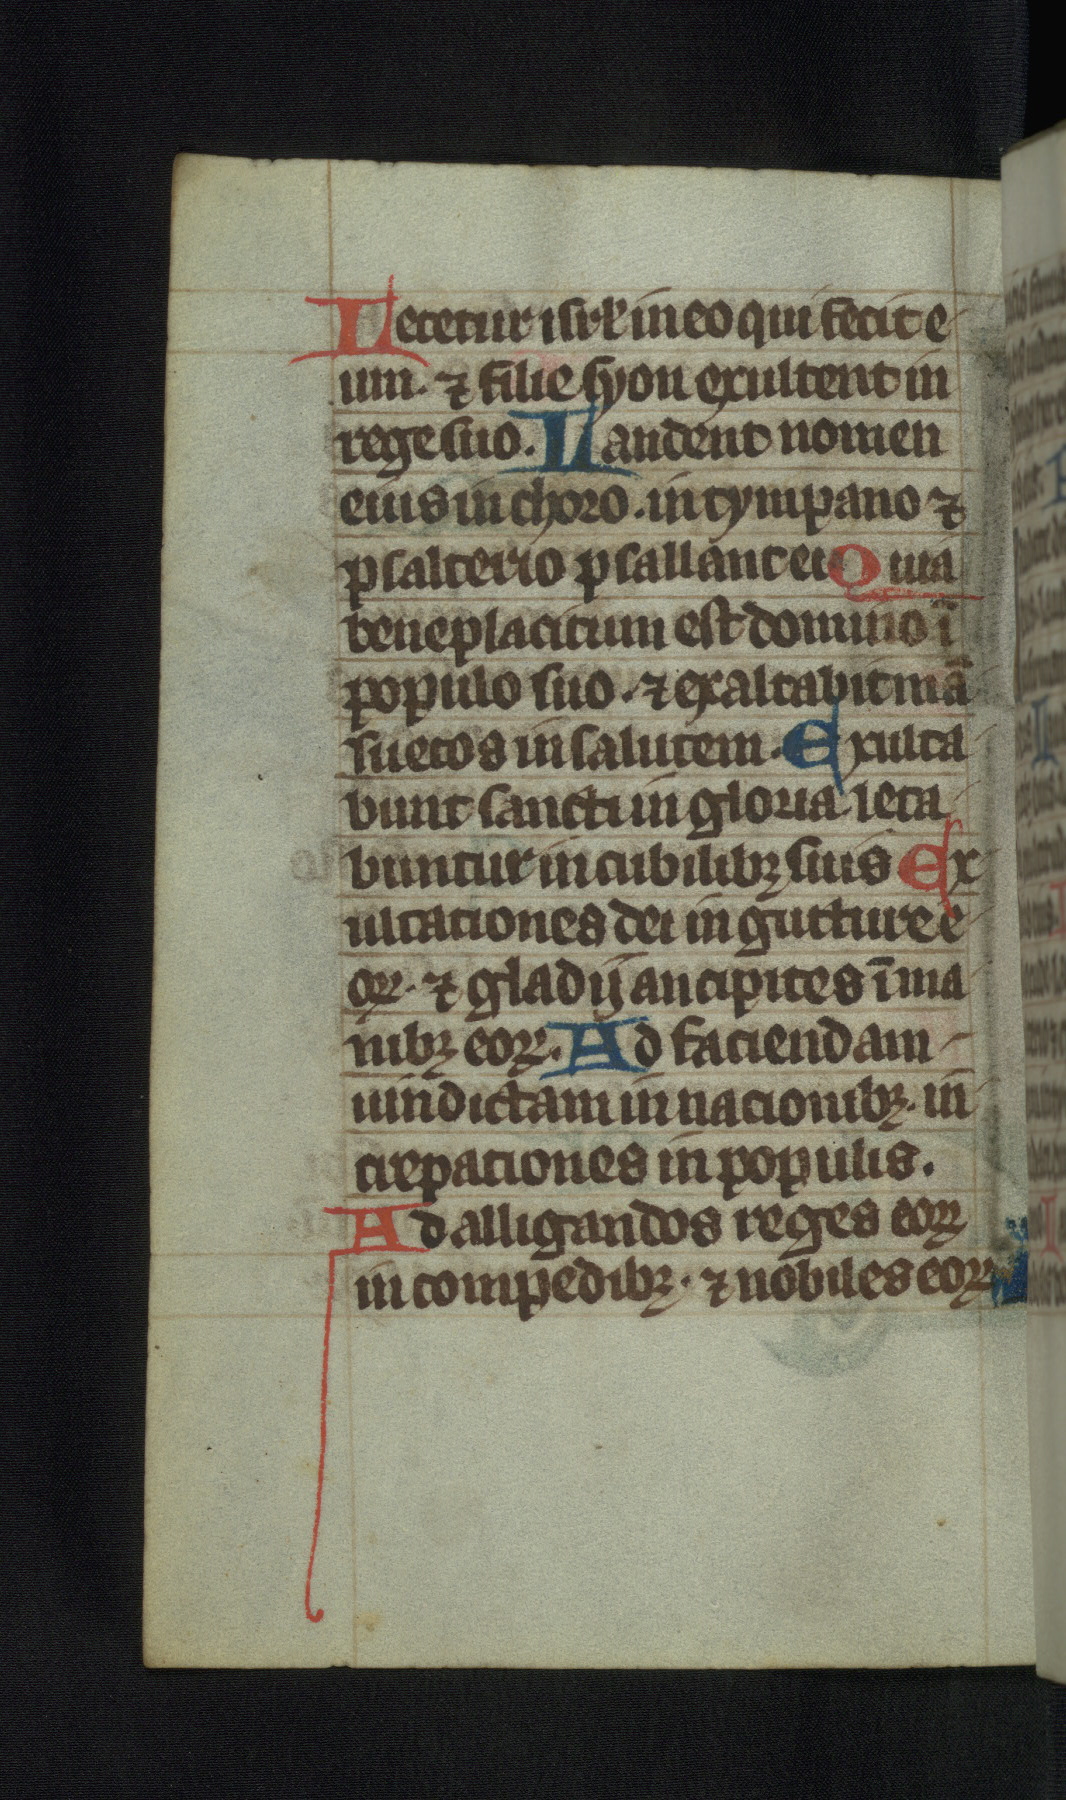 Letetur isrl in eo qui fecit e
um. ⁊ filie syon exultent in
rege suo. Laudent nomen
eius in choro. in tympano ⁊
psalterio psallant ei Quia
beneplacitum est domino ī
populo suo. ⁊ exaltabit mā
suetos in salutem. Exulta
bunt sancti in gloria leta
buntur in cubilibꝫ suis Ex
ultationes dei in gutture e
oꝝ. ⁊ gladij ancipites ī ma
nibꝫ eoꝝ. Ad faciendam
uindictam in nacionibꝫ. in
crepationes in populis.
Ad alligandos reges eoꝝ
in compedibꝫ. ⁊ nobiles eoꝝ